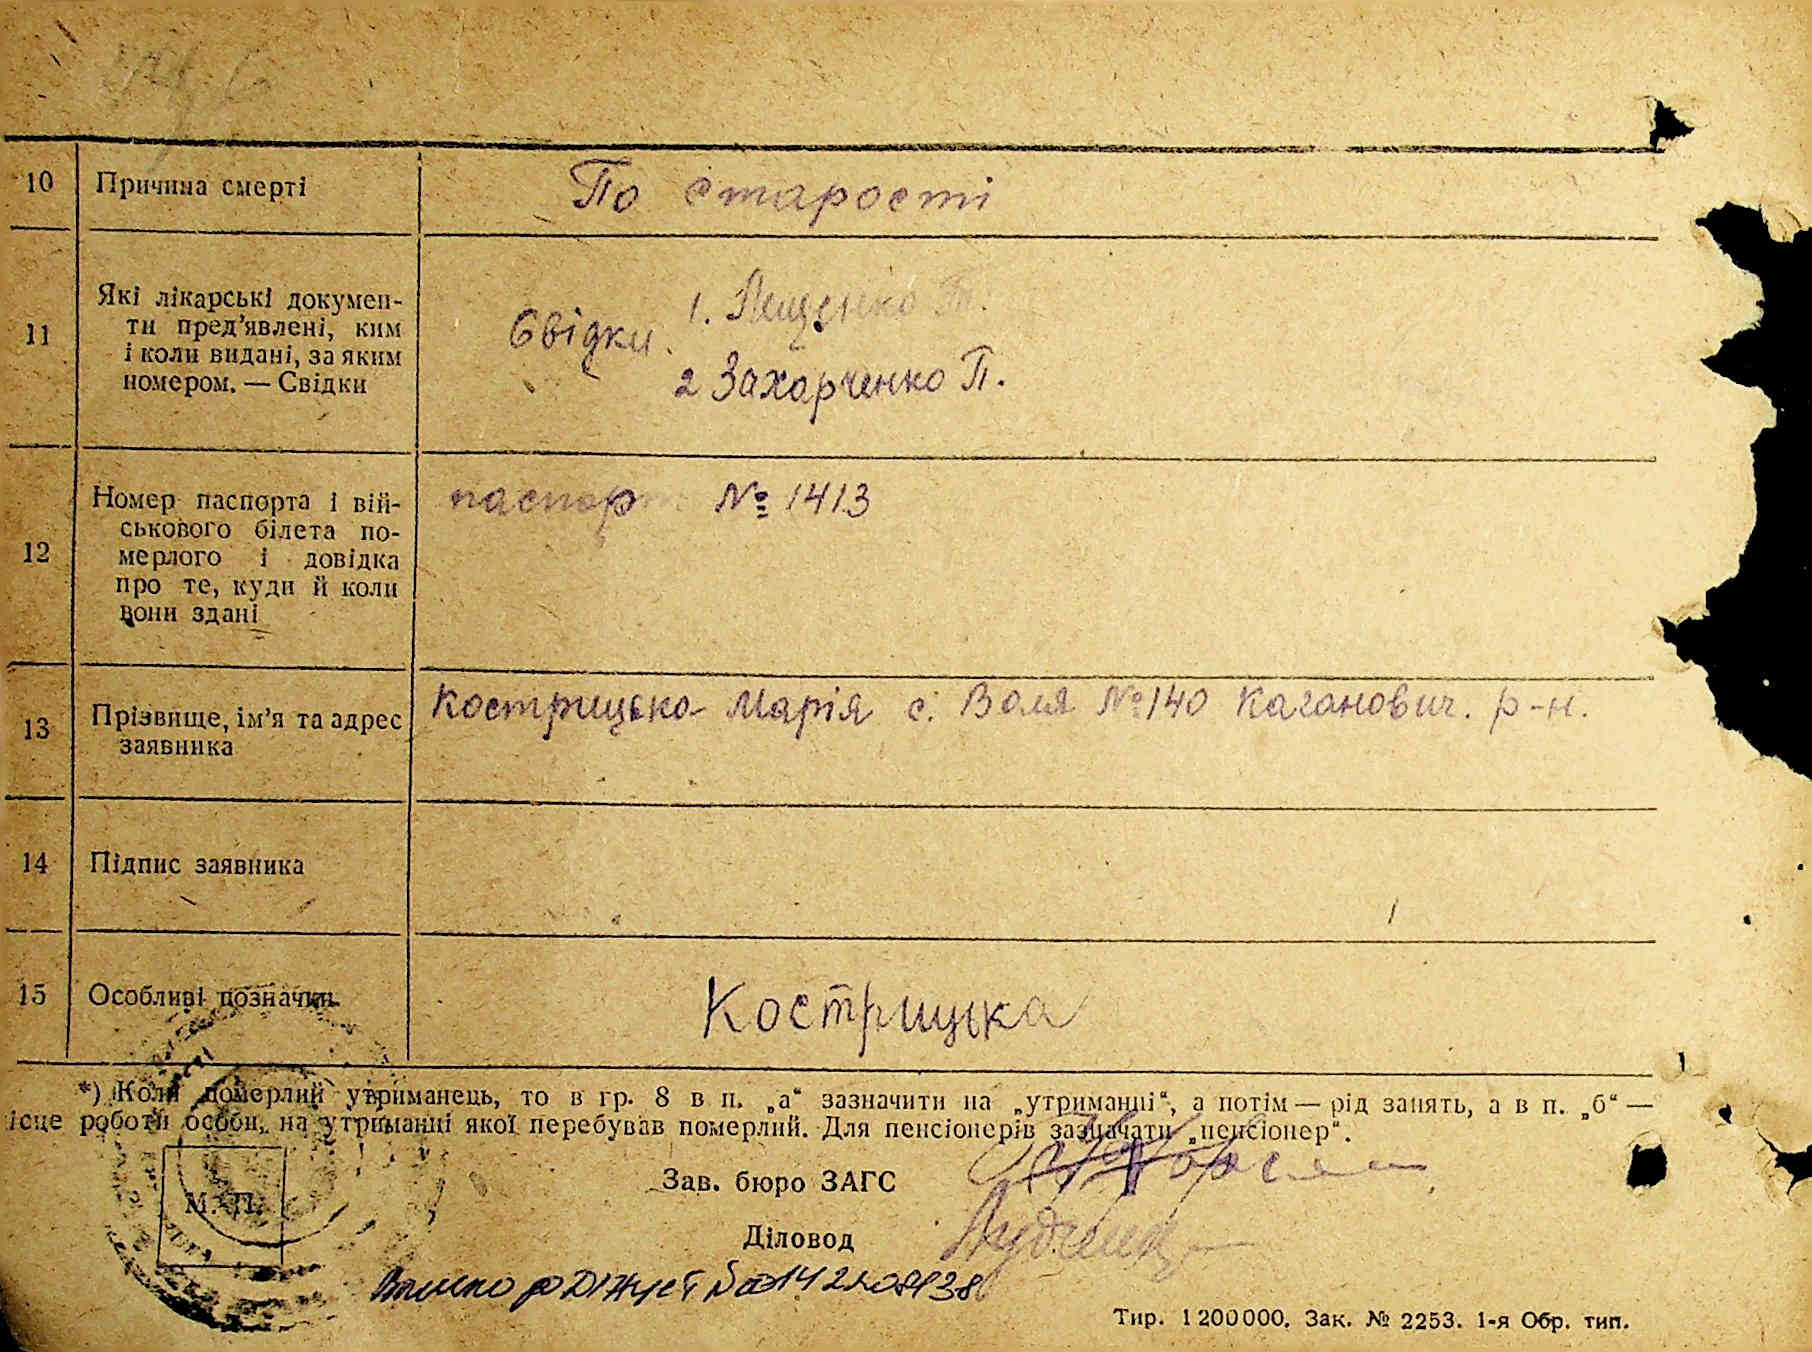 10 Причина смерті По старості
11 Які лікарські докумен-
ти пред'явлені, ким
і коли видані, за яким
номером. — Свідки
Свідки. 1. Лещенко Т.
2 Захарченко П.
12 Номер паспорта і вій-
ськового білета по-
мерлого і довідка
про те, куди й коли
вони здані
паспорт № 1413
13 Прізвище, ім'я та адрес
заявника
Кострицько Марія с. Воля №140 Каганович. р-н.
14 Підпис заявника
15 Особливі позначки
Кострицька
*) Коли померлий утриманець, то в гр. 8 в п. „а“ зазначити на „утриманні“, а потім — рід занять, а в п. „б“ —
ісце роботи особи, на утриманні якої перебував померлий. Для пенсіонерів зазначати „пенсіонер“.
Зав. бюро ЗАГС
М. П.
Діловод
Тир. 1200000. Зак. № 2253. 1-я Обр. тип.